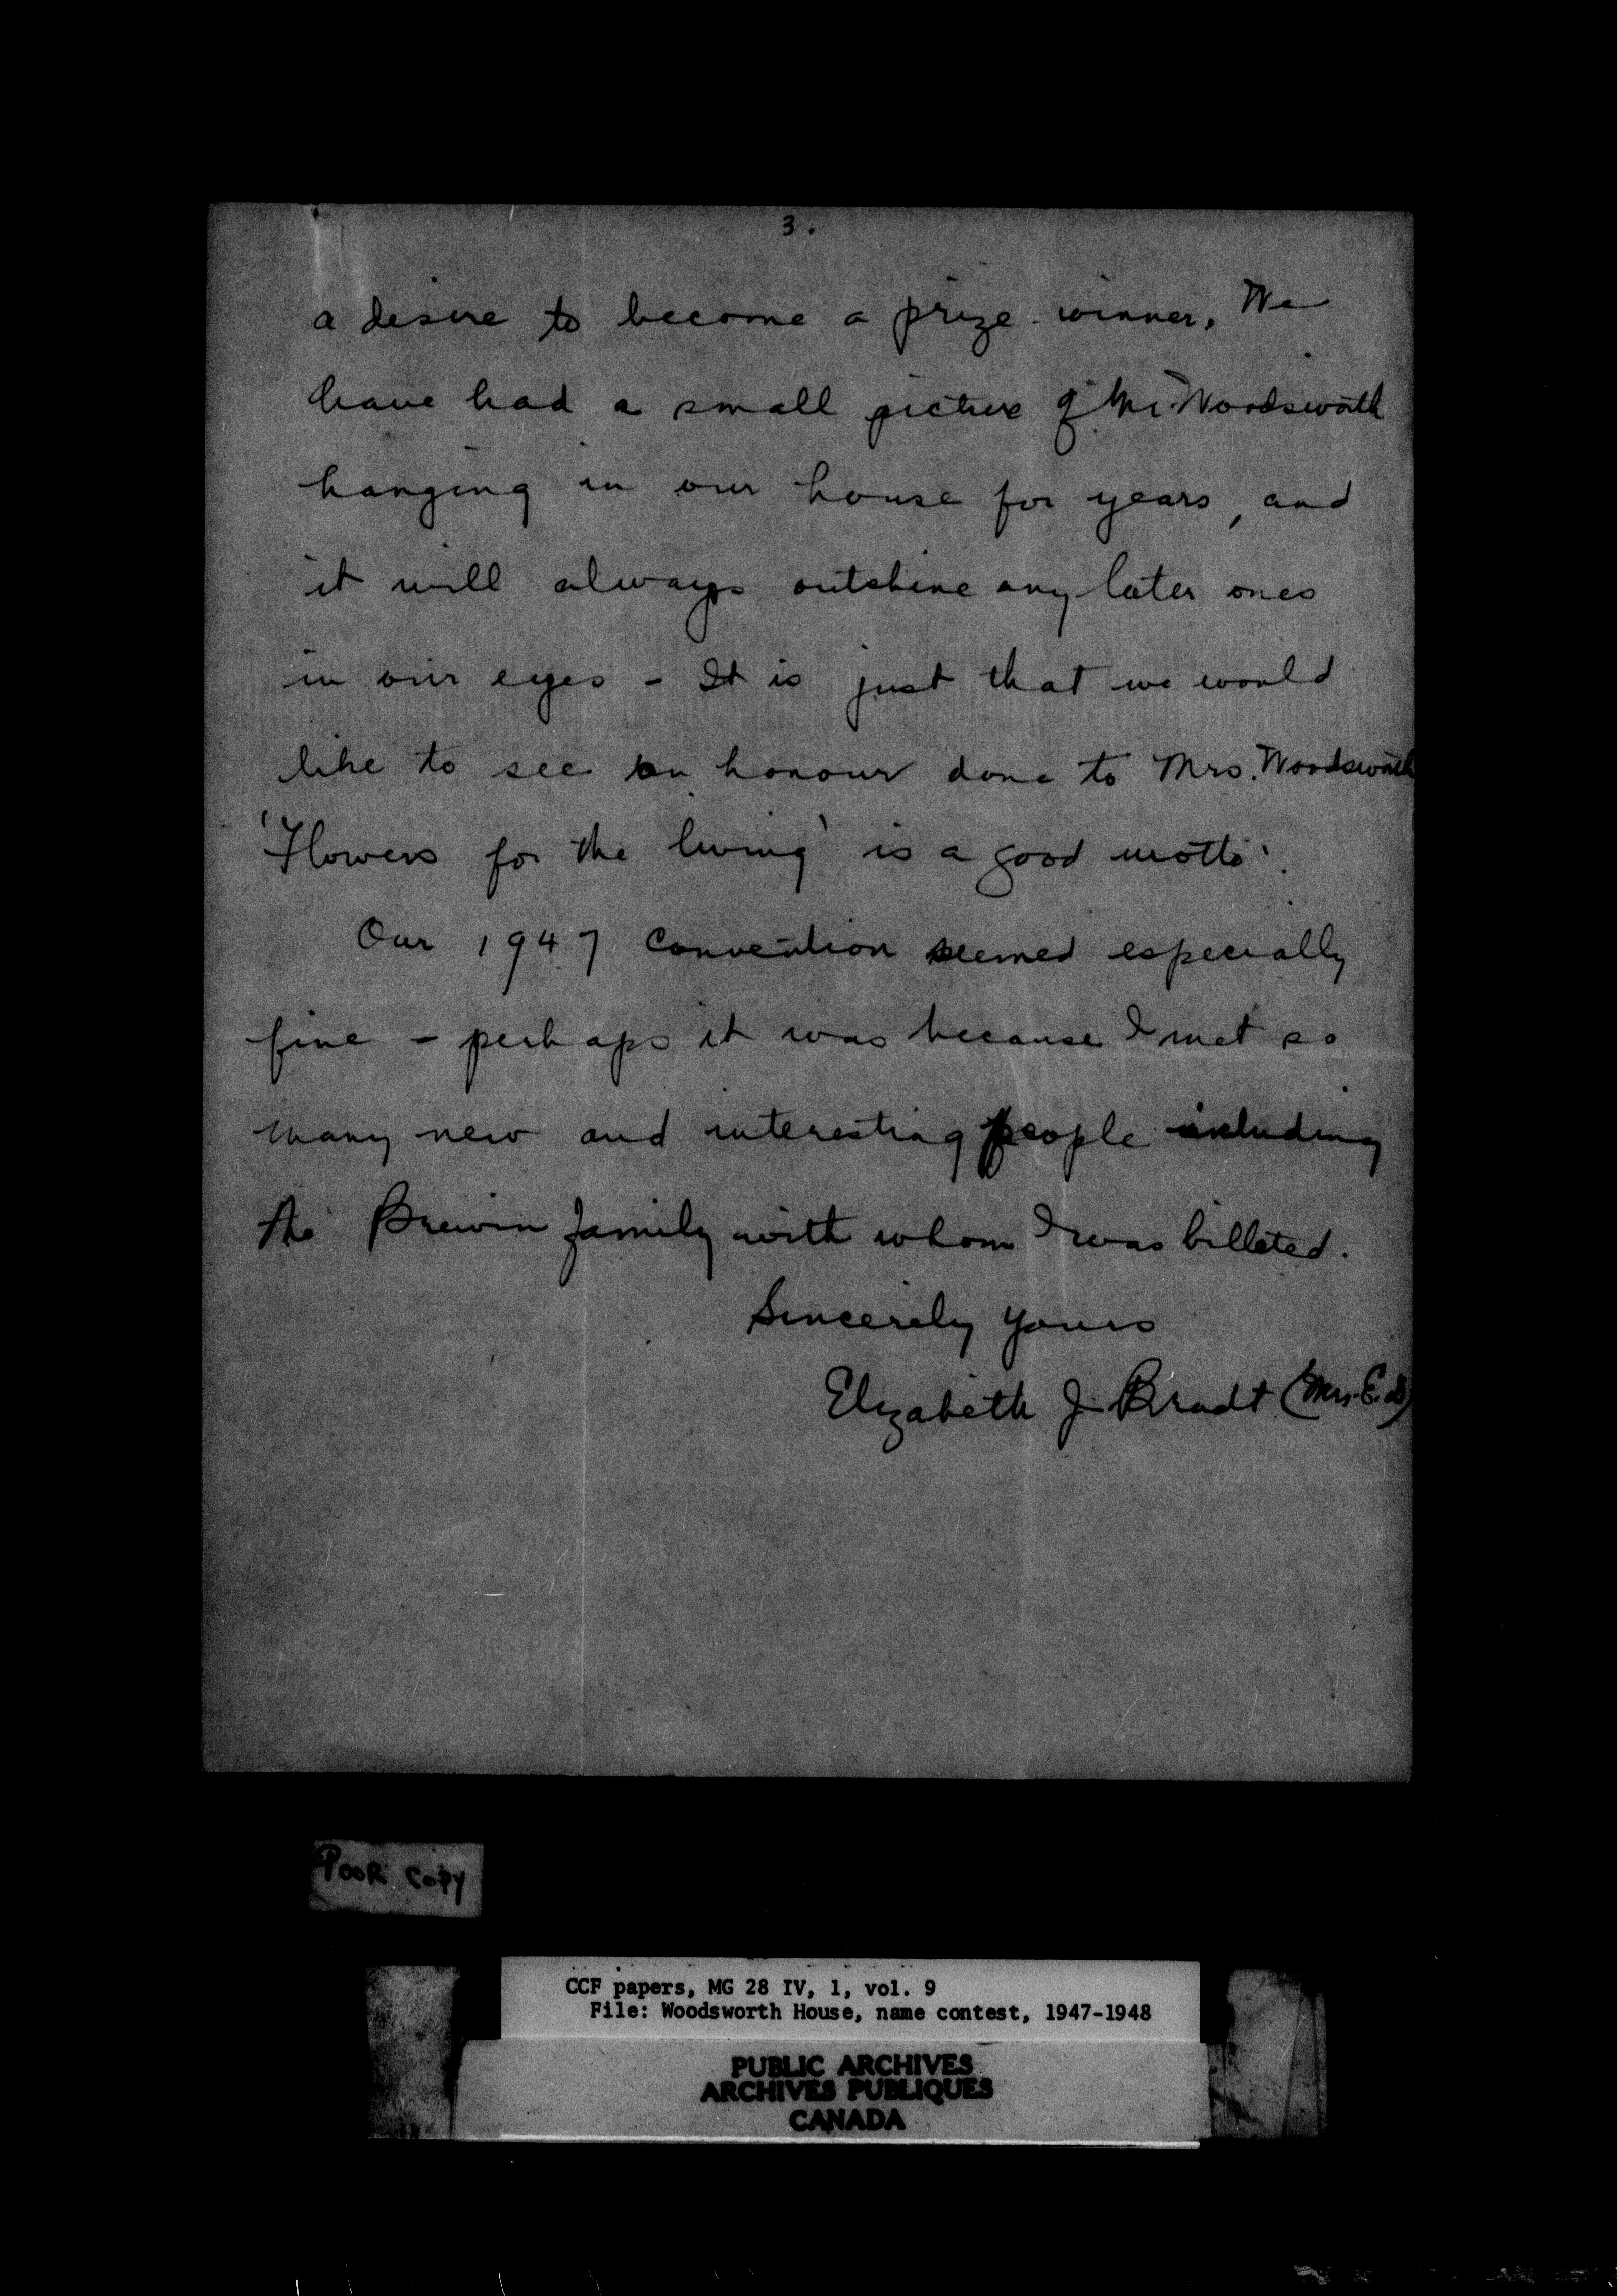 3.
a desire to become a prize-winner. We
have had a small picture of Mr. Woodsworth
hanging in our house for years, and
it will always outshine any later ones
in our eyes - It is just that we would
like to see an honour done to Mrs. Woodsworth
'Flowers for the living' is a good motto.
Our 1947 Convention seemed especially
fine - perhaps it was because I met so
many new and interesting people including
the Brewin family with whom I was billeted.
Sincerely yours
Elizabeth J. Bradt (Mrs. E. D)
POOR COPY
CCF papers, MG 28 IV, 1, vol. 9
File: Woodsworth House, name contest, 1947-1948
PUBLIC ARCHIVES
ARCHIVES PUBLIQUES
CANADA